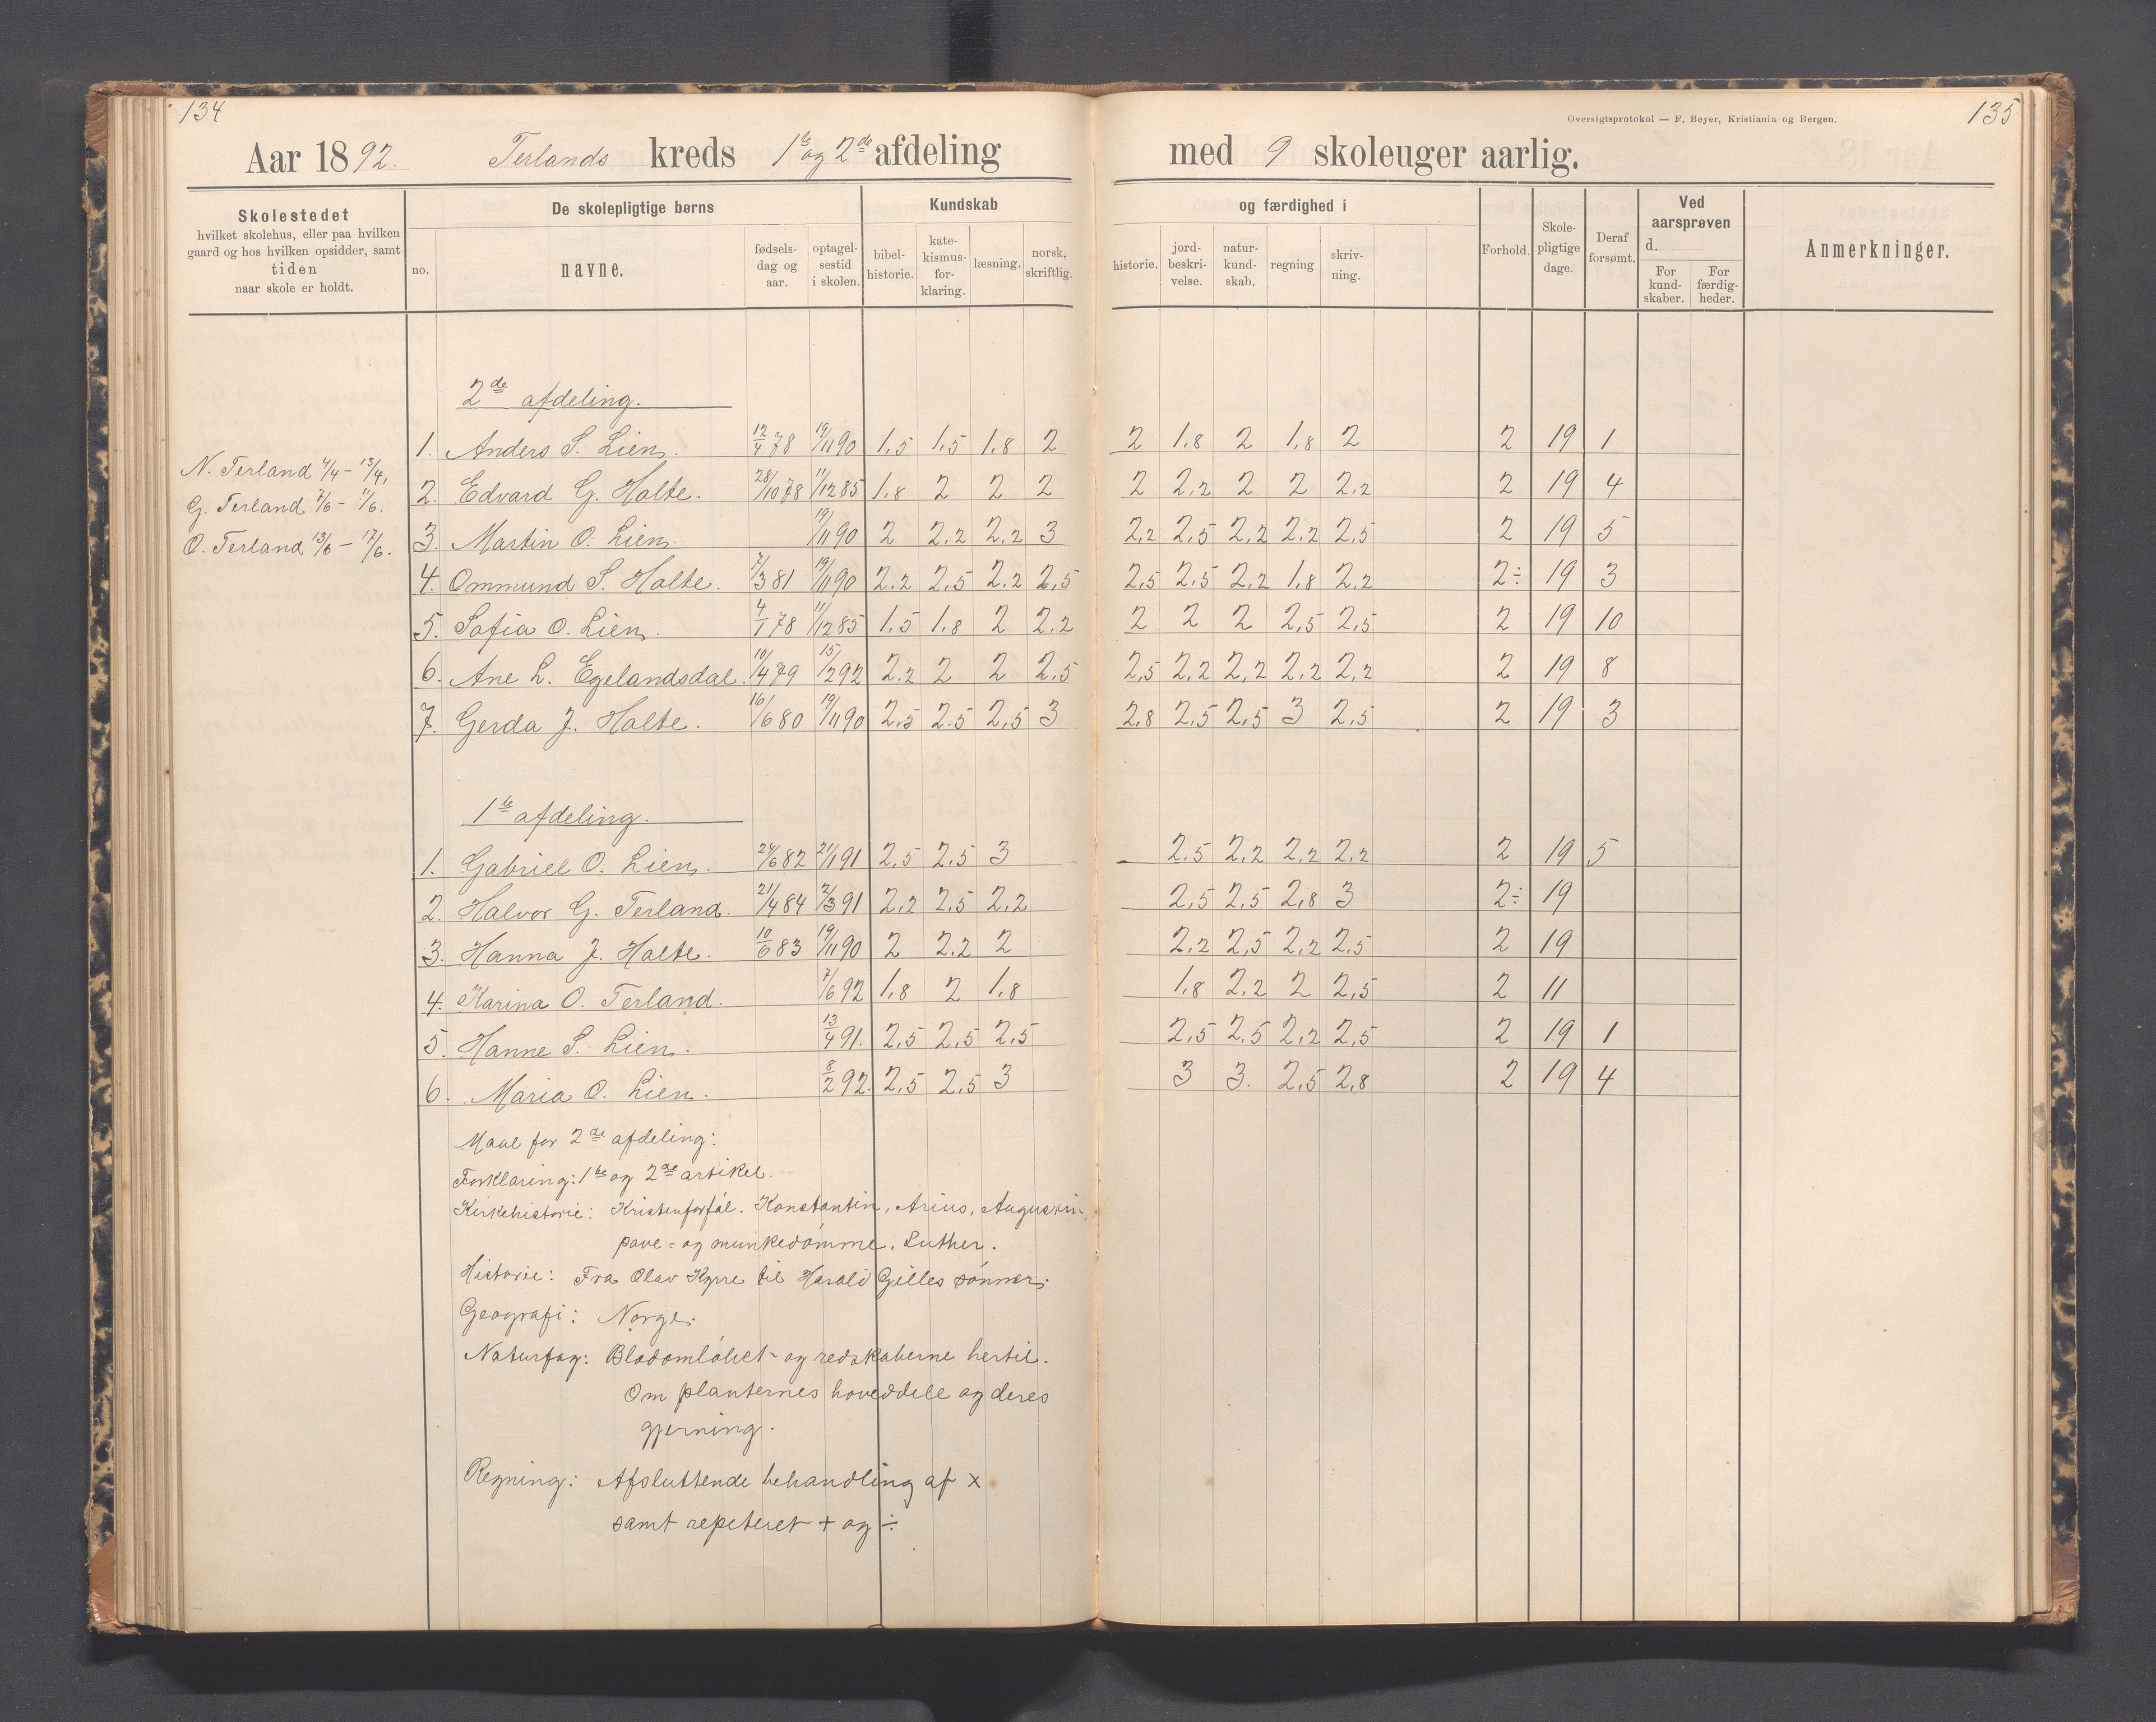 134
Aar 1892. Terlands kreds 1ste og 2de afdeling
Skolestedet
hvilket skolehus, eller paa hvilken
gaard og hos hvilken opsidder, samt
tiden
naar skole er holdt.
De skolepligtige børns
no.
navne.
fødsels-
dag og
aar.
optagel-
sestid
i skolen.
Kundskab
bibel-
historie.
kate-
kismus-
for-
klaring.
læsning.
norsk,
skriftlig.
Oversigtsprotokol — F. Beyer, Kristiania og Bergen.
135
med 9 skoleuger aarlig.
og færdighed i
historie.
jord-
beskri-
velse.
natur-
kund-
skab.
regning
skriv-
ning.
Forhold.
Skole-
pligtige
dage.
Deraf
forsømt.
Ved
aarsprøven
d.
For
kund-
skaber.
For
færdig-
heder.
Anmerkninger.
N. Terland 4/4 – 13/4,
G. Terland 7/6 – 11/6.
O. Terland 13/6 – 17/6.
2de afdeling.
1. Anders S. Lien. 12/4 78 19/11 90 1,5 1,5 1,8 2 2 1,8 2 1,8 2 2 19 1
2. Edvard G. Holte. 28/10 78 11/12 85 1,8 2 2 2 2 2,2 2 2 2,2 2 19 4
3. Martin O. Lien. 19/11 90 2 2,2 2,2 3 2,2 2,5 2,2 2,2 2,5 2 19 5
4. Ommund S. Holte. 7/3 81 19/11 90 2,2 2,5 2,2 2,5 2,5 2,5 2,2 1,8 2,2 2÷ 19 3
5. Sofia O. Lien. 4/1 78 11/12 85 1,5 1,8 2 2,2 2 2 2 2,5 2,5 2 19 10
6. Ane L. Egelandsdal. 10/4 79 15/2 92 2,2 2 2 2,5 2,5 2,2 2,2 2,2 2,2 2 19 8
7. Gerda J. Holte. 16/6 80 19/11 90 2,5 2,5 2,5 3 2,8 2,5 2,5 3 2,5 2 19 3
1ste afdeling.
1. Gabriel O. Lien. 24/6 82 21/1 91 2,5 2,5 3 2,5 2,2 2,2 2,2 2 19 5
2. Halvor G. Terland. 21/4 84 2/3 91 2,2 2,5 2,2 2,5 2,5 2,8 3 2÷ 19
3. Hanna J. Holte. 10/6 83 19/11 90 2 2,2 2 2,2 2,5 2,2 2,5 2 19
4. Karina O. Terland. 7/6 92 1,8 2 1,8 1,8 2,2 2 2,5 2 11
5. Hanne S. Lien. 13/4 91. 2,5 2,5 2,5 2,5 2,5 2,2 2,5 2 19 1
6. Maria O. Lien. 8/2 92. 2,5 2,5 3 3 3. 2,5 2,8 2 19 4
Maal for 2de afdeling:
Forklaring: 1ste og 2de artikel.
Kirkehistorie: Kristenforføl. Konstantin, Arius, Augustin,
pave- og munkedømme, Luther.
Historie: Fra Olav Kyrre til Harald Gilles sønner.
Geografi: Norge.
Naturfag: Blodomløbet og redskaberne hertil.
Om planternes hoveddele og deres
gjerning.
Regning: Afsluttende behandling af ×
samt repeteret + og ÷